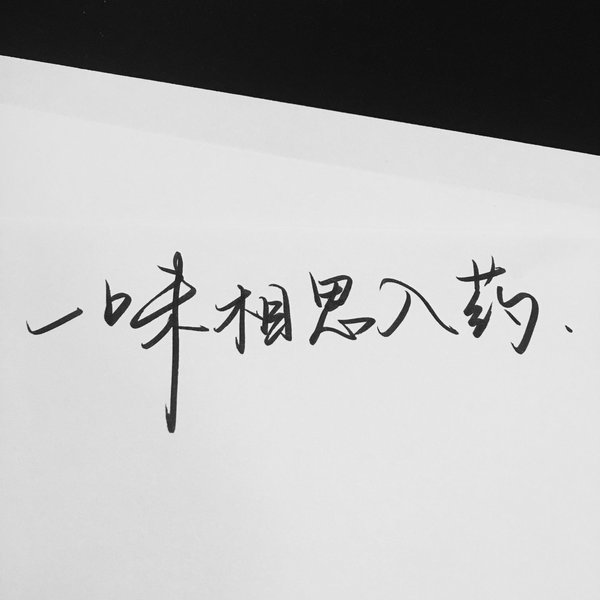 一味相思入药.